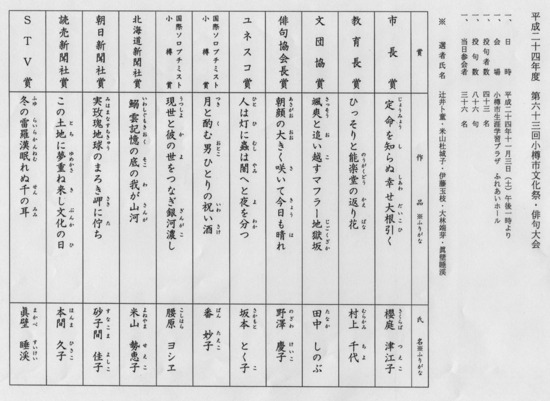 平成二十四年度　第六十三回小樽市文化祭・俳句大会
一、日　時　平成二十四年十一月三日（土）午後一時より
一、会　場　小樽市生涯学習プラザ　ふれあいホール
一、投句者数　四十三名
一、投句数　八十六句
一、当日参会者　三十六名
※　選者氏名　辻井卜童・米山杜城子・伊藤玉枝・大林端芽・眞壁睡渓
賞　作　品　※ふりがな　氏　名※ふりがな
市　長　賞　定命を知らぬ幸せ大根引く　櫻庭　津江子
教　育　長　賞　ひっそりと能楽堂の返り花　村上　千代
文　団　協　賞　颯爽と追い越すマフラー地獄坂　田中　しのぶ
俳句協会長賞　朝顔の大きく咲いて今日も晴れ　野澤　慶子
ユネスコ賞　人は灯に蟲は闇へと夜を分つ　坂本　とく子
国際ソロプチミスト小樽賞　月と酌む男ひとりの祝い酒　番　妙子
国際ソロプチミスト小樽賞　現世と彼の世をつなぎ銀河濃し　腰原　ヨシヱ
北海道新聞社賞　鰯雲記憶の底の我が山河　米山　勢恵子
朝日新聞社賞　実玫瑰地球のまろき岬に佇ち　砂子間　佳子
読売新聞社賞　この土地に夢重ね来し文化の日　本間　久子
ＳＴＶ賞　冬の雷羅漢眠れぬ千の耳　眞壁　睡渓